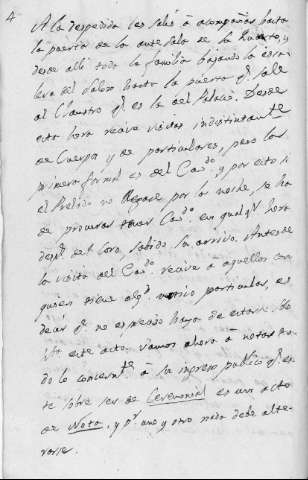 4
A la despedida les salió á acompañar hasta
la puerta de la ante Sala de la Huerta, y
desde alli toda la familia bajando la esca-
lera del Salon hasta la puerta q.e sale
al Claustro q.e es la del Palacio. Desde
esta hora recive visitas indistintam.te
de Cuerpo y de particulares, pero la
primera formal es del Cav.do y por esto si
el Prelado no llegase por la noche, se ha
de procurar Cav.do en qualq.r hora
desp.s del Coro, sabida la arrivo. Antes de
la visita del Cav.do recive á aquellos con
quien tiene alg.n motivo particular, es
decir q.e no es preciso haya de estar
este acto. Vamos ahora á notar to-
do lo concern.te á la ingreso publico q.e es-
te sobre ser de Ceremonial es un acto
de Nota, y p.r uno y otro nada debe alte-
rarse.